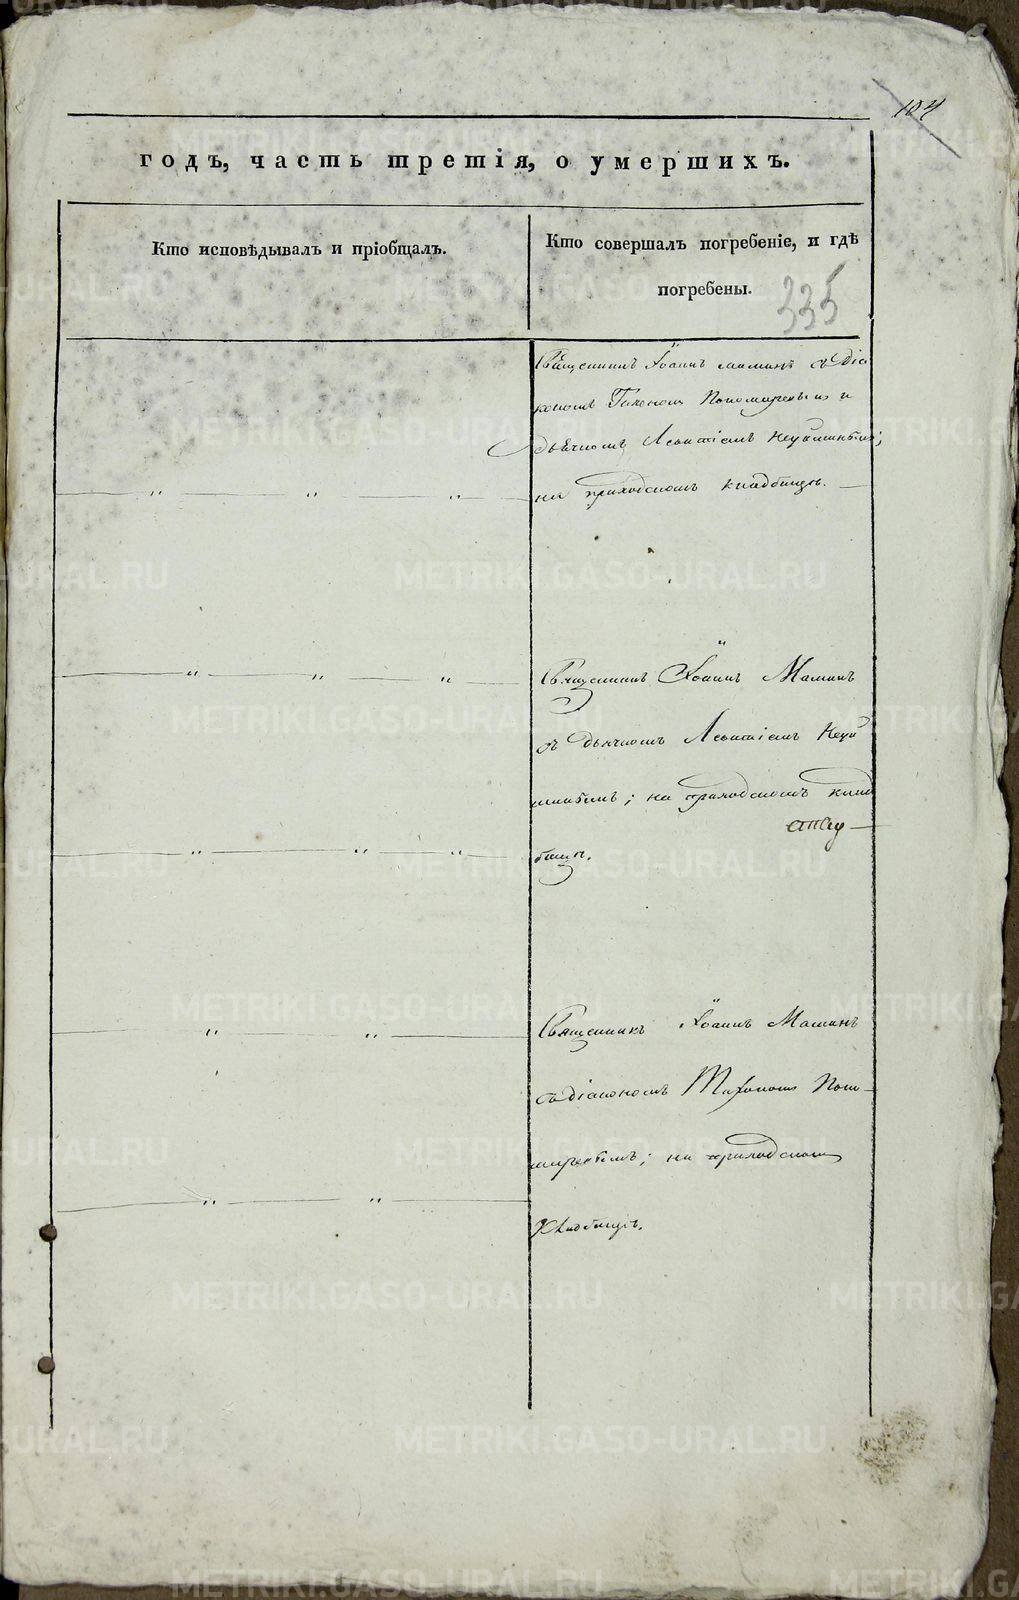 104
годъ, часть третія, о умершихъ.
Кто исповѣдывалъ и пріобщалъ.
Кто совершалъ погребеніе, и гдѣ
погребены.
335
Священникъ Іоаннъ Маминъ съ Діа
кономъ Тихономъ Пономаревымъ и
дьячкомъ Леонтіемъ
на приходскомъ кладбищѣ.
Священникъ Іоаннъ Маминъ
съ дьячкомъ Леонтіемъ
на приходскомъ клад
бищѣ.
Священникъ Іоаннъ Маминъ
съ діакономъ Тихономъ Поно
маревымъ; на приходскомъ
кладбищѣ.
METRIKI.GASO-URAL.RU